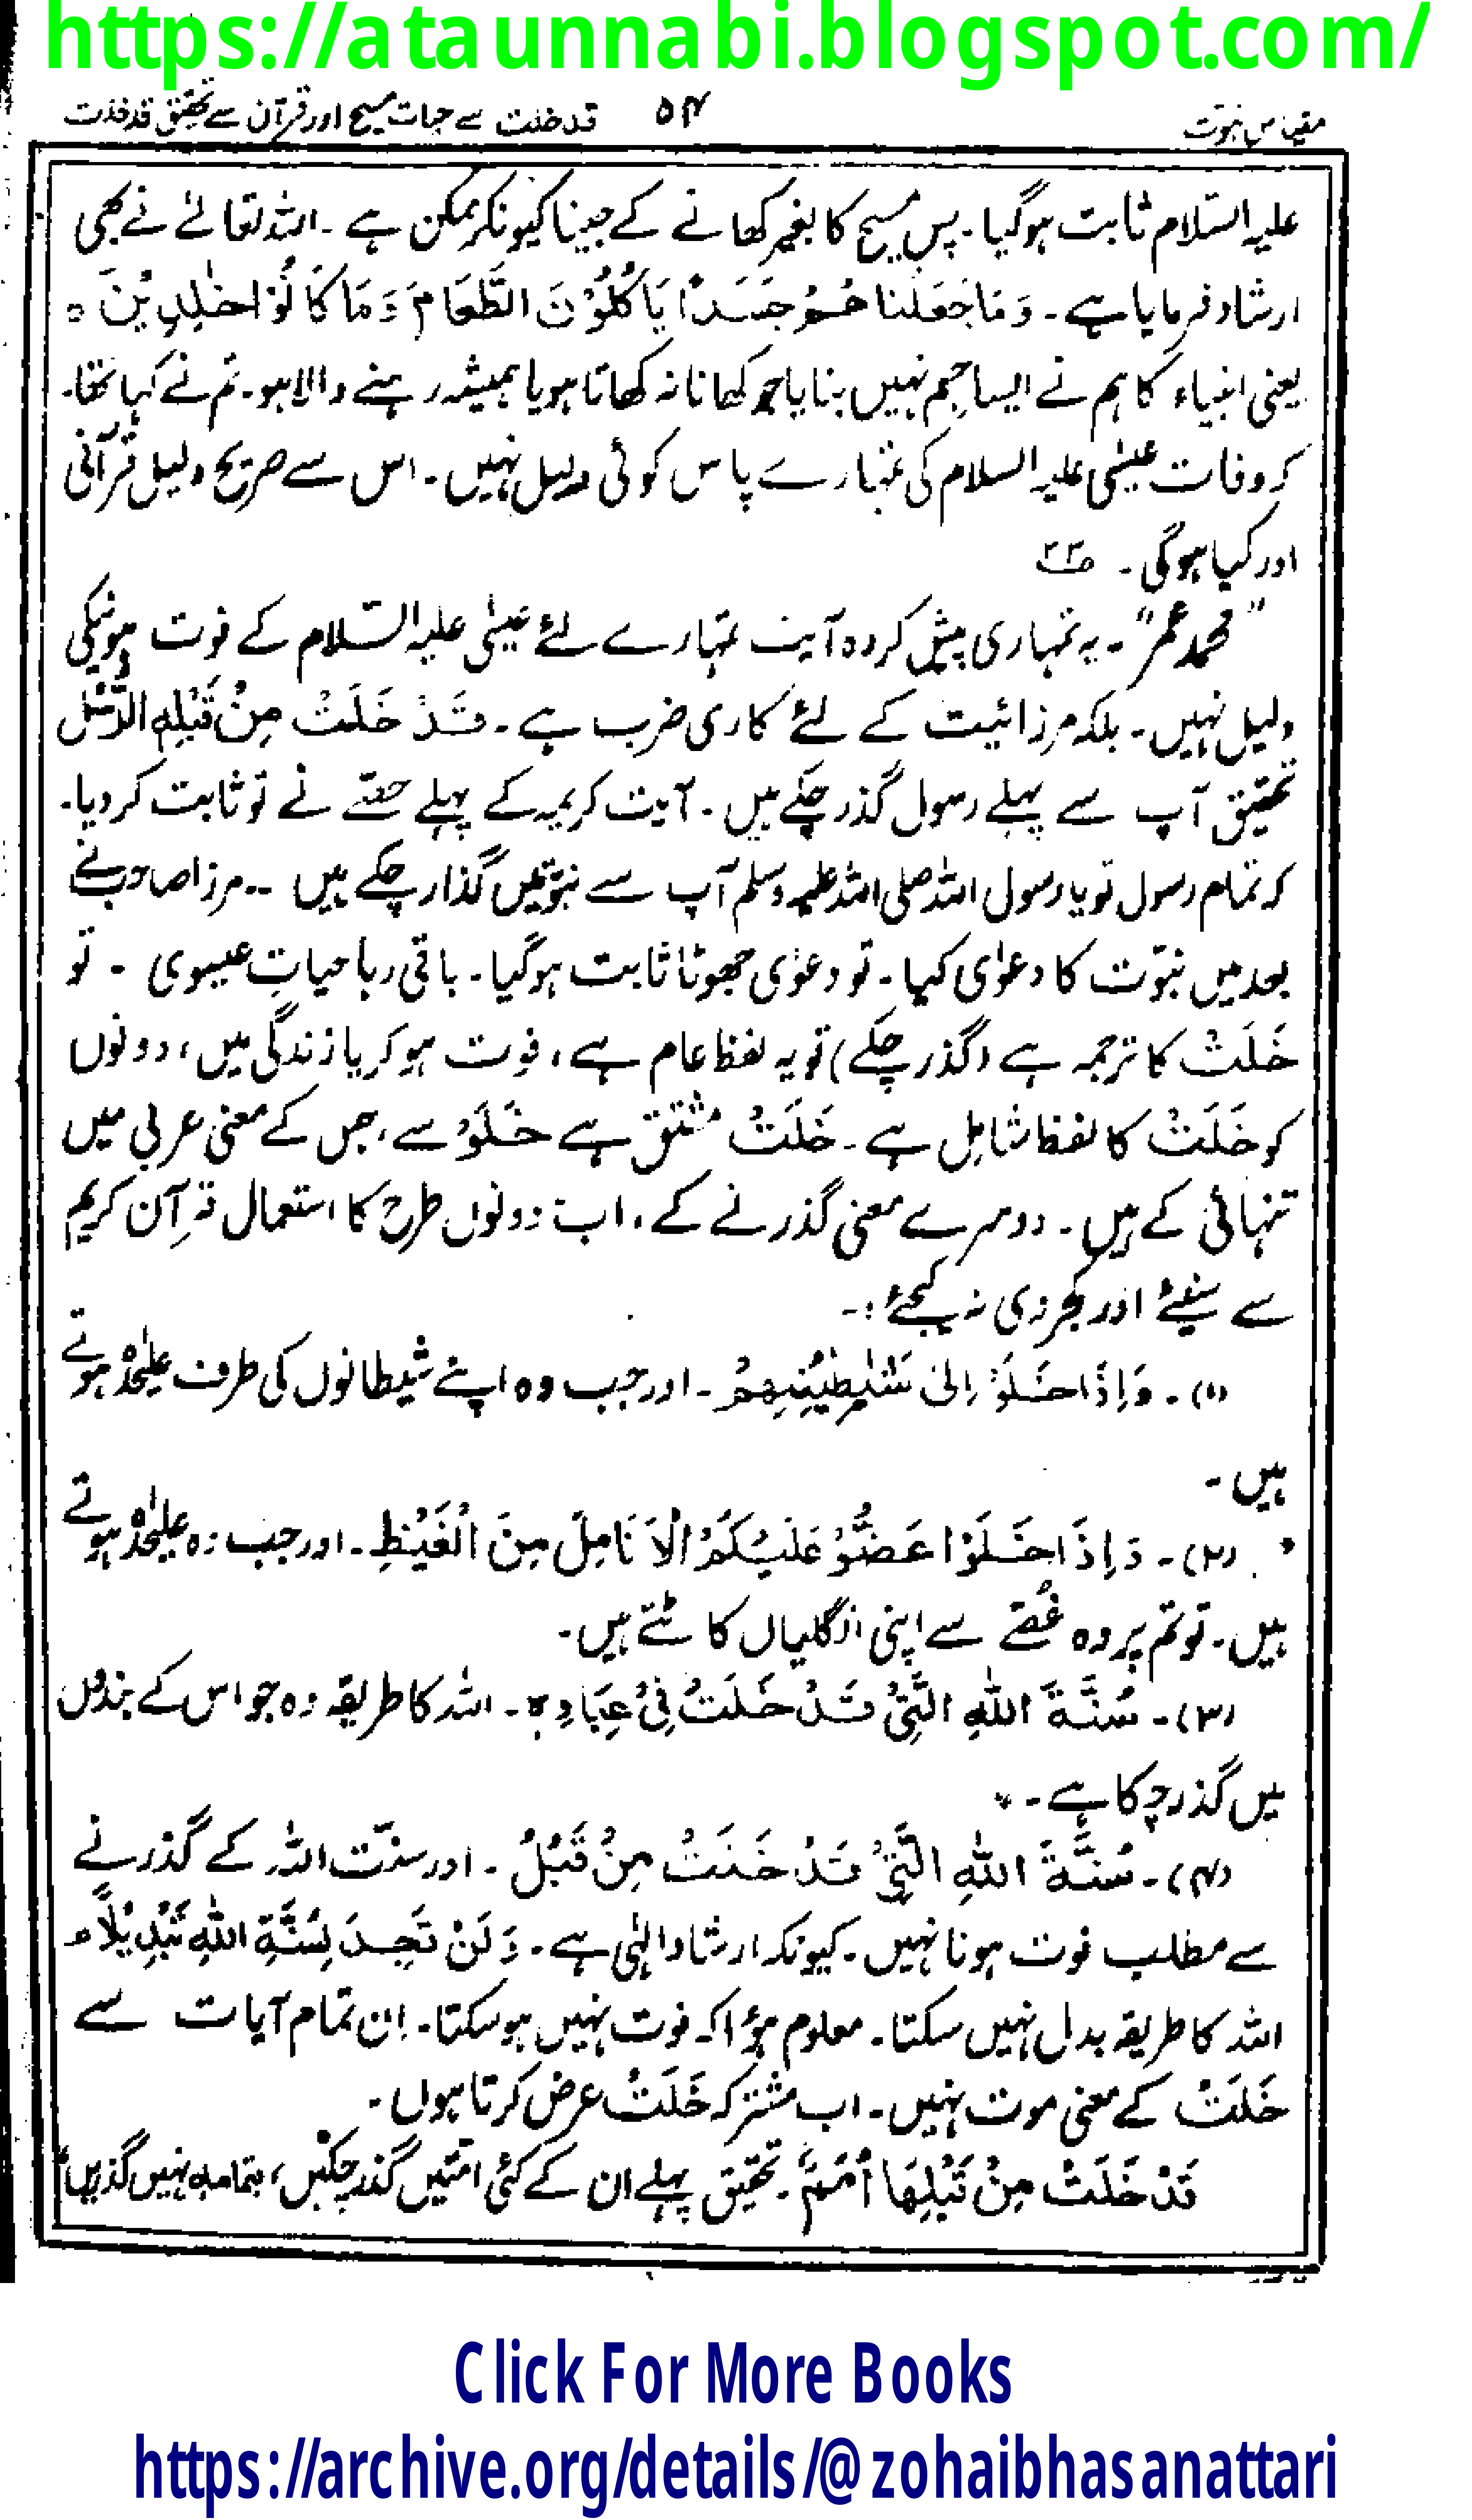 https://ataunnabi.blogspot.com/
مقیاس نبوت ۵۴ قد خلت سے حیات مسیح اور قرآن سے تحقیق قد خلت
علیہ السّلام ثابت ہوگیا۔ پس مسیح کا بغیر کھانے کے جینا کیونکر ممکن ہے ۔ اللہ تعالےٰ نے بھی
ارشاد فرمایا ہے ۔ وَمَا جَعَلْنَا هُمْ جَسَدًا يَا كُلُوْنَ الطَّعَامَ وَمَا كَانُوْا خٰلِدِيْنَ ہ
یعنی انبیاء کا ہم نے ایسا جسم نہیں بنایا جو کھانا نہ کھاتا ہو یا ہمیشہ رہنے والا ہو۔ تم نے کہا تھا۔
کہ وفات عیسٰی علیہ السلام کی تمہارے پاس کوئی دلیل نہیں ۔ اس سے صریح دلیل قرآنی
اور کیا ہوگی ۔
"محمد عمر" ۔ یہ تمہاری پیش کردہ آیت تمہارے لئے عیسٰی علیہ السّلام کے فوت ہونیکی
دلیل نہیں ۔ بلکہ مرزائیت کے لئے کاری ضرب ہے ۔ قَدْ خَلَتْ مِنْ قَبْلِهِ الرُّسُلُ
تحقیق آپ سے پہلے رسول گذر چکے ہیں ۔ آیت کریمہ کے پہلے حصّے نے تو ثابت کر دیا۔
کہ تمام رسول تو یا رسول اللہ صلی اللہ علیہ وسلم آپ سے نبوّتیں گذار چکے ہیں ۔۔ مرزا صاحب نے
بعد میں نبوّت کا دعوٰی کیا ۔ تو دعوٰی جھوٹا ثابت ہوگیا ۔ باقی رہا حیاتِ عیسوی ۔ تو
خَلَتْ کا ترجمہ ہے (گذر چکے) تو یہ لفظ عام ہے ، فوت ہو کر یا زندگی میں ، دونوں
کو خَلَتْ کا لفظ شامل ہے ۔ خَلَتْ مشتق ہے خَلَوْ سے ، جس کے معنی عربی میں
تنہائی کے ہیں ۔ دوسرے معنی گذرنے کے ، اب دونوں طرح کا استعمال قرآن کریم
سے سنیئے اور کجروی نہ کیجئے :۔
(۱) ۔ وَاِذَا خَلَوْ اِلىٰ شَيٰطِيْنِهِمْ ۔ اور جب وہ اپنے شیطانوں کی طرف علیحدٰہ ہوتے
ہیں ۔
(۲) ۔ وَاِذَا خَلَوْا عَضُّوْ عَلَيْكُمُ الْاَ نَامِلَ مِنَ الْغَيْظِ ۔ اور جب وہ علیحٰدہ ہوتے
ہیں ۔ تو تم پر وہ غُصّے سے اپنی انگلیاں کاٹتے ہیں ۔
(۳) ۔ سُنَّةَ اللهِ الَّتِيْ قَدْ خَلَتْ فِيْ عِبَادِهٖ ۔ اللہ کا طریقہ وہ جو اس کے بندوں
میں گذر چکا ہے ۔
(۴) ۔ سُنَّةَ اللهِ الَّتِيْ قَدْ خَلَتْ مِنْ قَبْلُ ۔ اور سنّت اللہ کے گذرنے
سے مطلب فوت ہونا نہیں ۔ کیونکہ ارشاد الہٰی ہے ۔ وَلَنْ تَجِدَ لِسُنَّةِ اللهِ تَبْدِيْلًا ۔
اللہ کا طریقہ بدل نہیں سکتا ۔ معلوم ہؤا کہ فوت نہیں ہوسکتا ۔ اِن تمام آیات سے
خَلَتْ کے معنی موت نہیں ۔ اب مشترکہ خَلَتْ عرض کرتا ہوں ۔
قَدْ خَلَتْ مِنْ قَبْلِهَا اُمَمٌ ۔ تحقیق پہلے ان کے کئی امّتیں گذر چکیں ، بتمامہا نہیں گذریں
Click For More Books
https://archive.org/details/@zohaibhasanattari